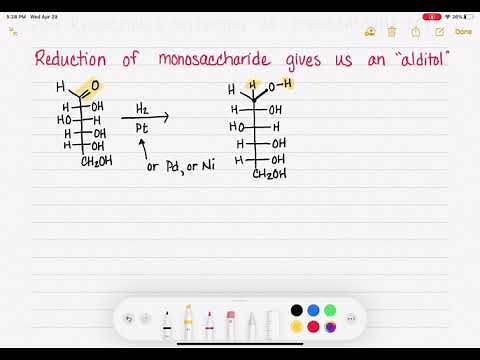 5:28 PM Wed Apr 29
39%
Done
Reduction of monosaccharide gives us an "alditol"
H O H H O-H
H OH H2 H OH
HO H Pt HO H
H OH H OH
H OH or Pd, or Ni H OH
CH2OH CH2OH